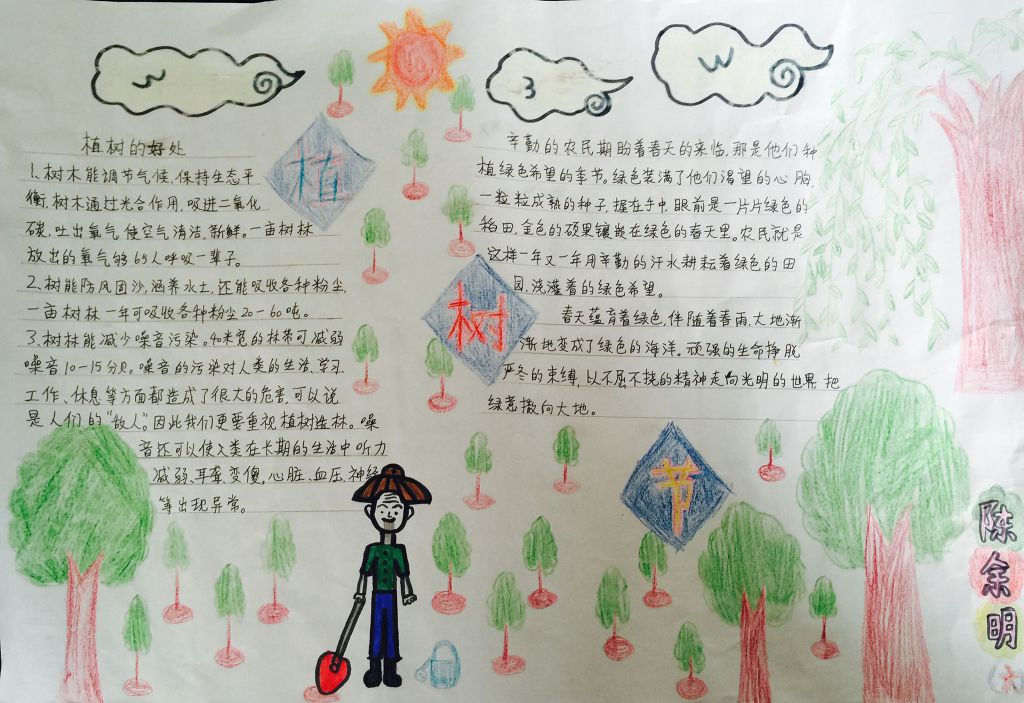 植
树
节
植树的好处
1.树木能调节气候,保持生态平
衡,树木通过光合作用,吸进二氧化
碳,吐出氧气,使空气清洁,新鲜。一亩树林
放出的氧气够65人呼吸一辈子。
2.树能防风固沙,涵养水土,还能吸收各种粉尘,
一亩树林一年可吸收各种粉尘20-60吨。
3.树林能减少噪音污染。40米宽的林带可减弱
噪音10-15分贝。噪音的污染对人类的生活、学习、
工作、休息等方面都造成了很大的危害,可以说
是人们的“敌人”。因此我们更要重视植树造林。噪
音还可以使人类在长期的生活中听力
减弱、耳聋、变傻,心脏、血压、神经
等出现异常。
辛勤的农民期盼着春天的来临,那是他们种
植绿色希望的季节。绿色装满了他们渴望的心胸,
一粒粒成熟的种子,握在手中,眼前是一片片绿色的
稻田,金色的硕果镶嵌在绿色的春天里。农民就是
这样一年又一年用辛勤的汗水耕耘着绿色的田
园,浇灌着的绿色希望。
春天蕴育着绿色,伴随着春雨,大地渐
渐地变成了绿色的海洋。顽强的生命挣脱
严冬的束缚,以不屈不挠的精神走向光明的世界,把
绿意撒向大地。
陈
余
明
六